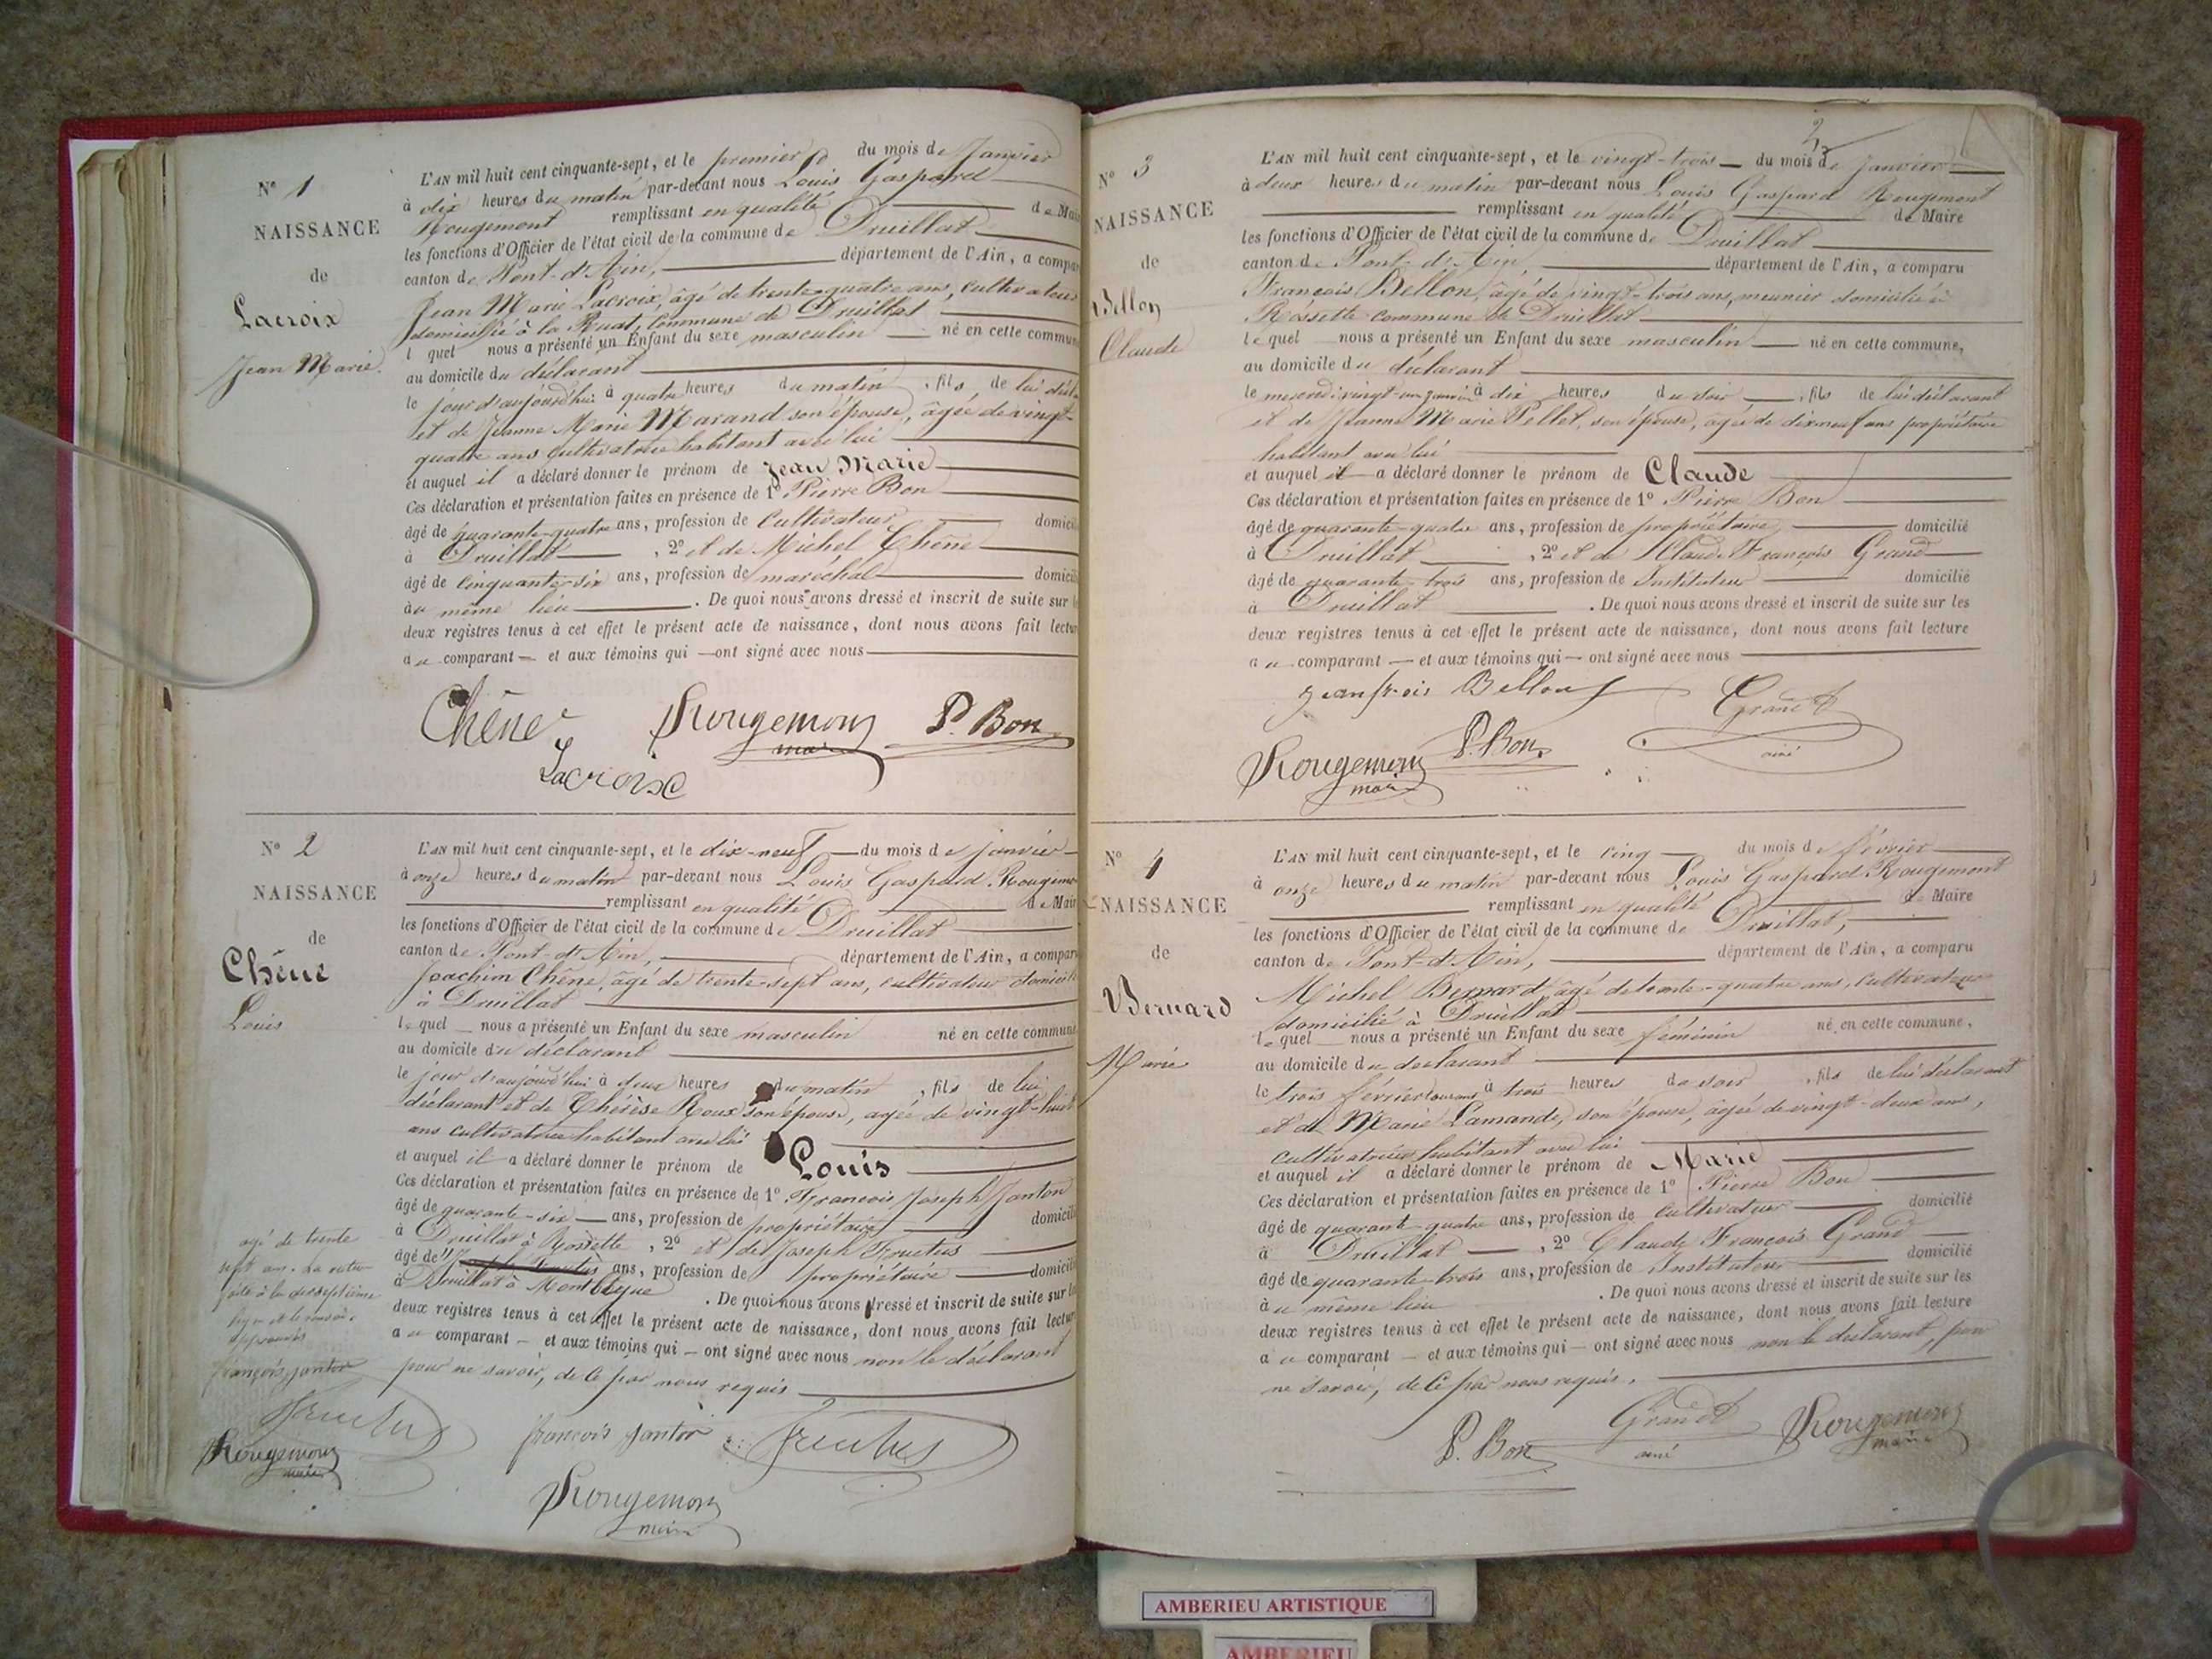 Nº 1
NAISSANCE
de
Lacroix
Jean Marie.
L'AN mil huit cent cinquante-sept, et le premier du mois de Janvier
à dix heures du matin par-devant nous Louis Gaspard
Rougemont remplissant en qualité de Mai
les fonctions d'Officier de l'état civil de la commune de Druillat
canton de Pont-d'Ain, département de l'Ain, a compa
Jean Marie Lacroix, âgé de trente-quatre ans, cultivateur
domicilié à la Ruat, commune de Druillat
l quel nous a présenté un Enfant du sexe masculin né en cette commun
au domicile du déclarant
le jour d'aujourd'hui à quatre heures du matin, fils de lui décl
et de Jeanne Marie Marand son épouse, âgée de vingt-
quatre ans cultivatrice habitant avec lui
et auquel il a déclaré donner le prénom de Jean Marie
Ces déclaration et présentation faites en présence de 1º Pierre Bon
âgé de quarante-quatre ans, profession de Cultivateur domici
à Druillat, 2º et de Michel Chêne
âgé de cinquante-six ans, profession de maréchal domici
au même lieu. De quoi nous avons dressé et inscrit de suite sur l
deux registres tenus à cet effet le présent acte de naissance, dont nous avons fait lectur
au comparant et aux témoins qui ont signé avec nous
Chêne Rougemont maire P. Bon
Lacroix
Nº 2
NAISSANCE
de
Chêne
Louis
L'AN mil huit cent cinquante-sept, et le dix-neuf du mois de janvier
à onze heures du matin par-devant nous Louis Gaspard Rougemo
remplissant en qualité de Mair
les fonctions d'Officier de l'état civil de la commune de Druillat
canton de Pont-d'Ain, département de l'Ain, a compar
Joachim Chêne, âgé de trente-sept ans, cultivateur domicili
à Druillat
lequel nous a présenté un Enfant du sexe masculin né en cette commune
au domicile du déclarant
le jour d'aujourd'hui à deux heures du matin, fils de lui
déclarant et de Thérèse Roux son épouse, agée de vingt-huit
ans cultivatrice habitant avec lui
et auquel il a déclaré donner le prénom de Louis
Ces déclaration et présentation faites en présence de 1º François Joseph Janton
âgé de quarante-six ans, profession de propriétaire domicili
à Druillat à Rossette, 2º et de Joseph Fructus
âgé de ans, profession de propriétaire domicili
à Druillat à. De quoi nous avons dressé et inscrit de suite sur l
deux registres tenus à cet effet le présent acte de naissance, dont nous avons fait lectur
au comparant et aux témoins qui ont signé avec nous non le déclarant
pour ne savoir, de ce par nous requis
agé de trente
sept ans. La ratur
faite à la dixseptième
ligne et le renvoi
approuvés
françois janton
Fructus
Rougemont
maire
françois janton Fructus
Rougemont
maire
Nº 3
NAISSANCE
de
Bellon
Claude
2
L'AN mil huit cent cinquante-sept, et le vingt-trois du mois de janvier
à deux heures du matin par-devant nous Louis Gaspard Rougemont
remplissant en qualité de Maire
les fonctions d'Officier de l'état civil de la commune de Druillat
canton de Pont-d'Ain, département de l'Ain, a comparu
François Bellon, âgé de vingt-trois ans, meunier domicilié à
Rossette commune de Druillat
lequel nous a présenté un Enfant du sexe masculin né en cette commune,
au domicile du déclarant
le vingt-un janvier à dix heures du soir, fils de lui déclarant
et de Jeanne Marie Pellet, son épouse, agée de dixneuf ans propriétaire
habitant avec lui
et auquel il a déclaré donner le prénom de Claude
Ces déclaration et présentation faites en présence de 1º Pierre Bon
âgé de quarante-quatre ans, profession de propriétaire domicilié
à Druillat, 2º et de Claude François Grand
âgé de quarante-trois ans, profession de Instituteur domicilié
à Druillat. De quoi nous avons dressé et inscrit de suite sur les
deux registres tenus à cet effet le présent acte de naissance, dont nous avons fait lecture
au comparant et aux témoins qui ont signé avec nous
Jean frois Bellon Grand
ainé
Rougemont P. Bon
maire
Nº 4
NAISSANCE
de
Bernard
Marie
L'AN mil huit cent cinquante-sept, et le cinq du mois de février
à onze heures du matin par-devant nous Louis Gaspard Rougemont
remplissant en qualité de Maire
les fonctions d'Officier de l'état civil de la commune de Druillat,
canton de Pont-d'Ain, département de l'Ain, a comparu
Michel Bernard âgé de trente-quatre ans, cultivateur
domicilié à Druillat
lequel nous a présenté un Enfant du sexe féminin né en cette commune,
au domicile du déclarant
le trois février courant à trois heures du soir, fils de lui déclarant
et de Marie Lamande, son épouse, âgée de vingt-deux ans,
cultivatrice habitant avec lui
et auquel il a déclaré donner le prénom de Marie
Ces déclaration et présentation faites en présence de 1º Pierre Bon
âgé de quarante-quatre ans, profession de cultivateur domicilié
à Druillat, 2º Claude François Grand
âgé de quarante-trois ans, profession de Instituteur domicilié
au même lieu. De quoi nous avons dressé et inscrit de suite sur les
deux registres tenus à cet effet le présent acte de naissance, dont nous avons fait lecture
au comparant et aux témoins qui ont signé avec nous non le déclarant, pour
ne savoir, de ce par nous requis.
P. Bon Grand ainé Rougemont maire
AMBERIEU ARTISTIQUE
AMBERIEU